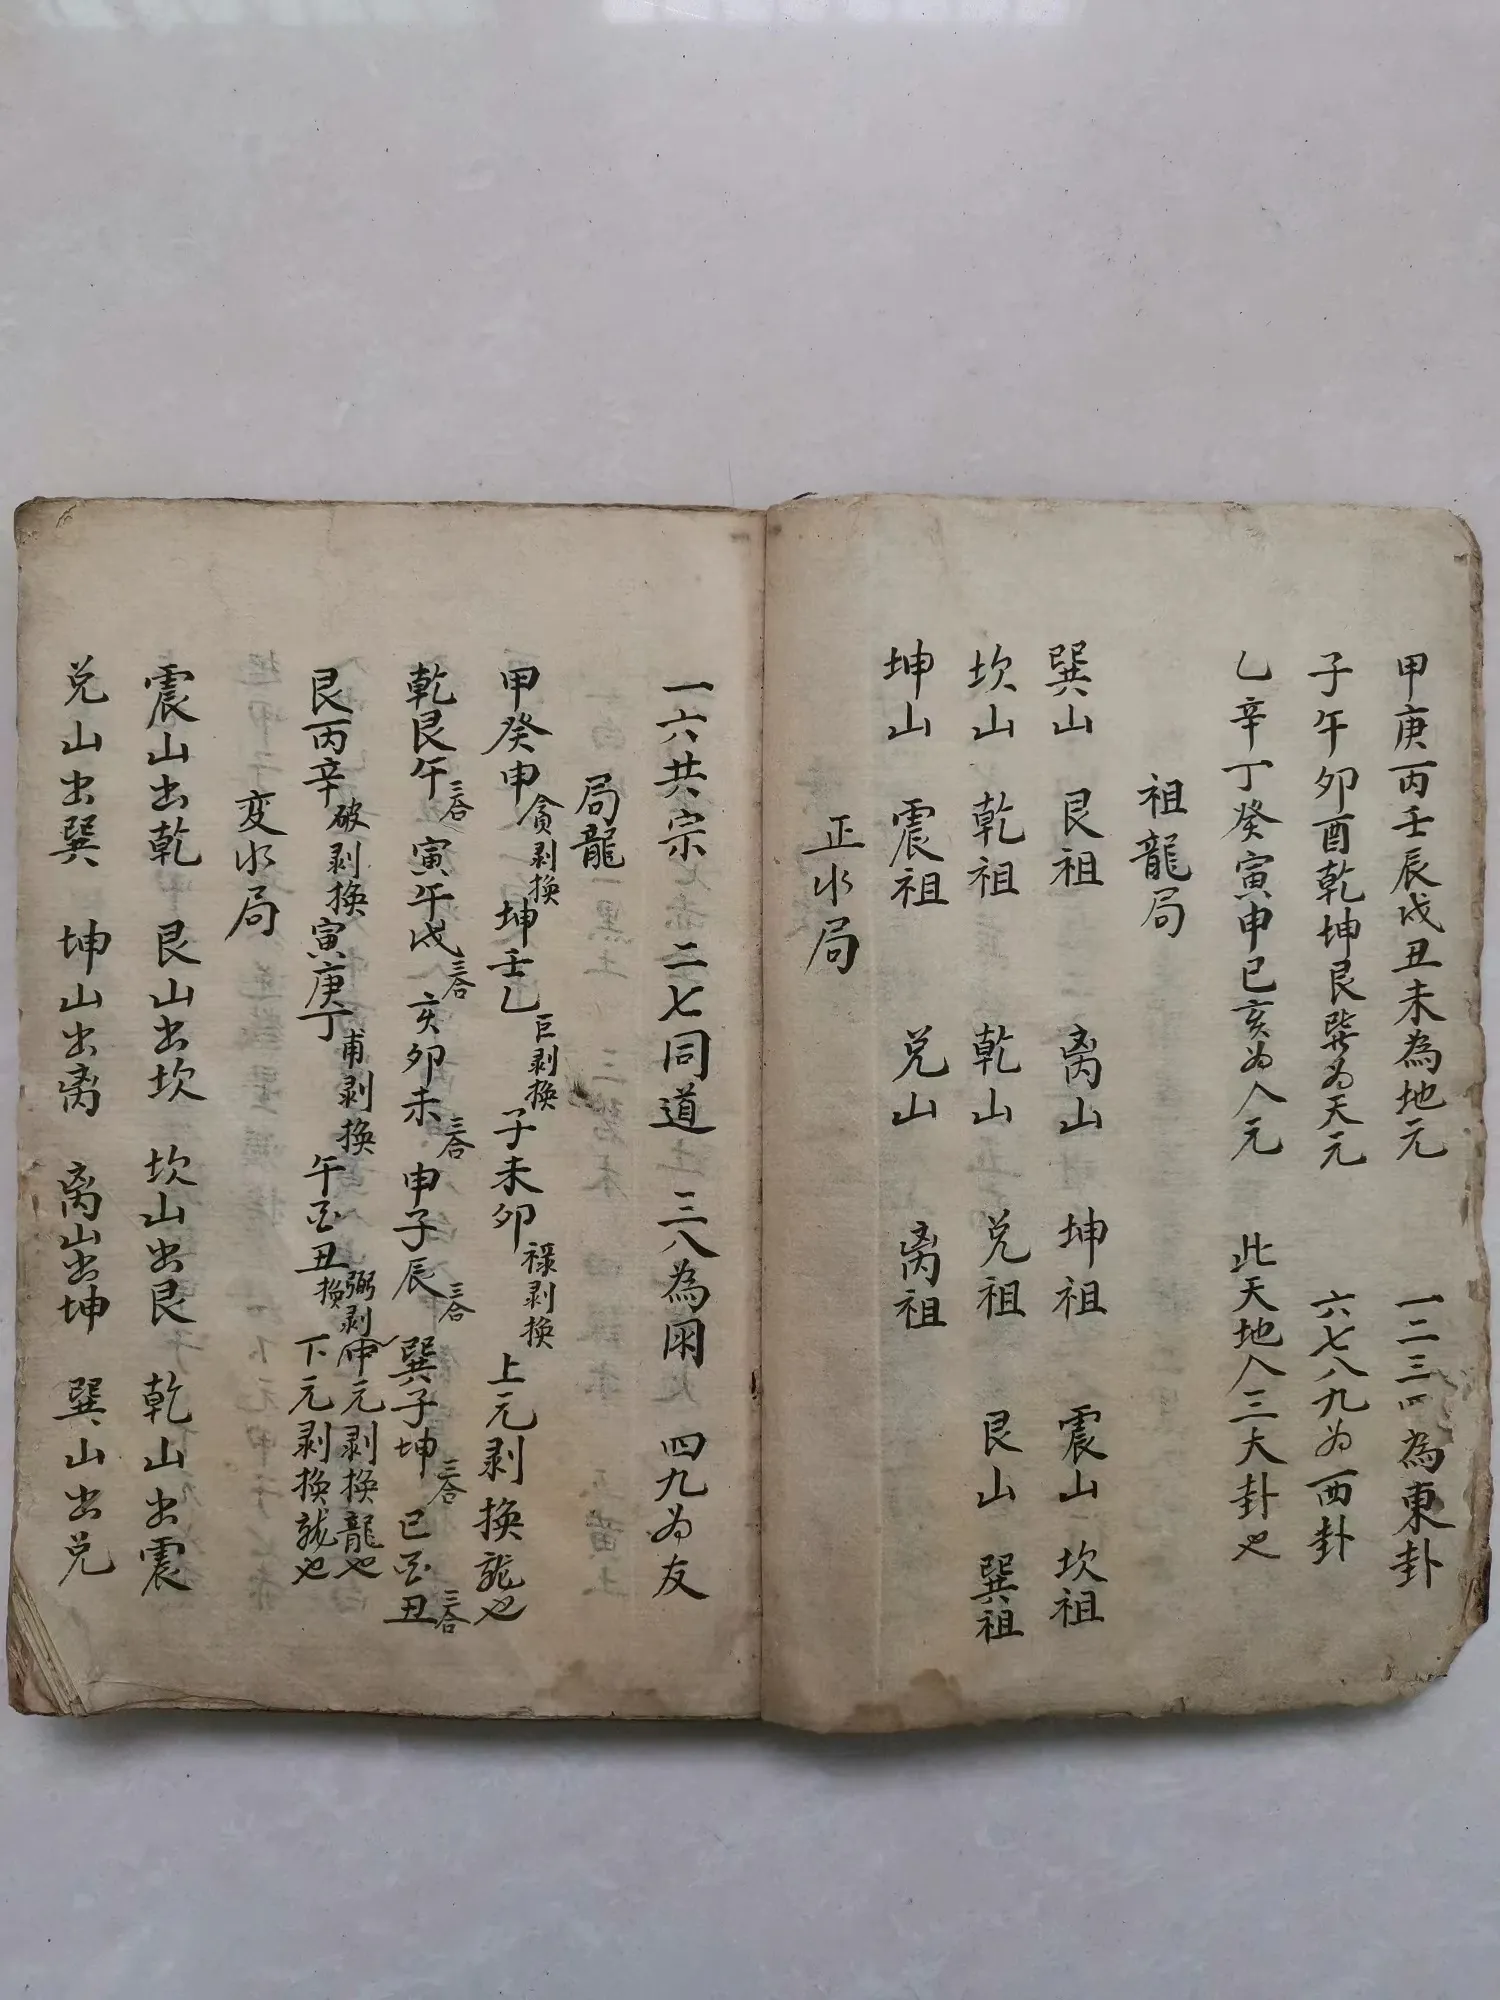 甲庚丙壬辰戌丑未為地元　一二三四為東卦
子午卯酉乾坤艮巽为天元　六七八九为西卦
乙辛丁癸寅申巳亥为人元　此天地人三大卦也
祖龍局
巽山　艮祖　离山　坤祖　震山　坎祖
坎山　乾祖　乾山　兑祖　艮山　巽祖
坤山　震祖　兑山　离祖
正水局
一六共宗　二七同道　三八為朋　四九为友
局龍
甲癸申貪剥換　坤壬乙巨剥換　子未卯祿剥換　上元剥換龍也
乾艮午三合　寅午戌三合　亥卯未三合　申子辰三合　巽子坤三合　巳酉丑三合
艮丙辛破剥換　寅庚丁甫剥換　午酉丑弼剥換　中元剥換龍也　下元剥換龍也
变水局
震山出乾　艮山出坎　坎山出艮　乾山出震
兑山出巽　坤山出离　离山出坤　巽山出兑